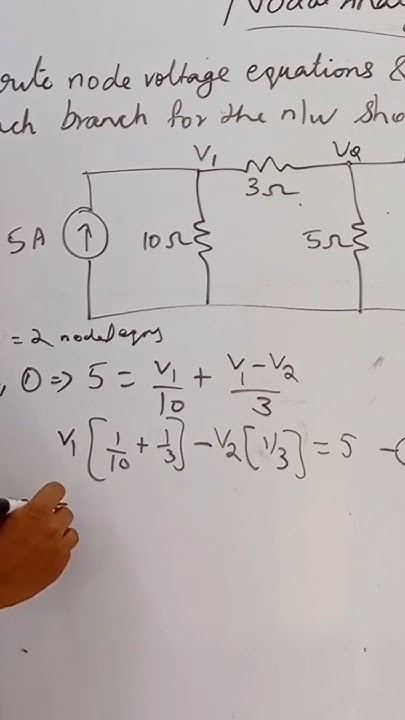 Nodal Anal
rite node voltage equations &
ch branch for the n/w sho
V1 V2
3Ω
5A 10Ω 5Ω
= 2 nodal eqns
① => 5 = V1/10 + (V1-V2)/3
V1 [1/10 + 1/3] - V2 [1/3] = 5 -